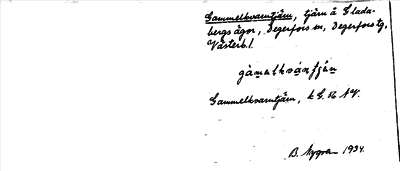 Gammelkvarntjärn, tjärn å Glada-
bergs ägor, Degerfors sn, Degerfors tg,
Västerb.l.
gàmalkvánfján
Gammelkvarntjärn, k G. 56 NV.
B. Nygren 1934.